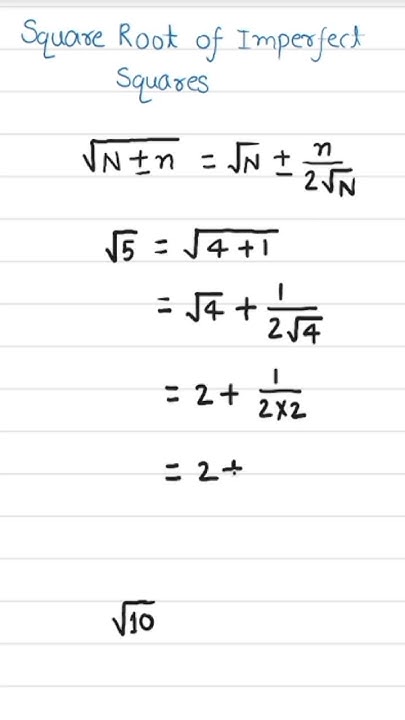 Square Root of Imperfect
Squares
√(N ± n) = √N ± n/(2√N)
√5 = √(4 + 1)
= √4 + 1/(2√4)
= 2 + 1/(2×2)
= 2 +
√10